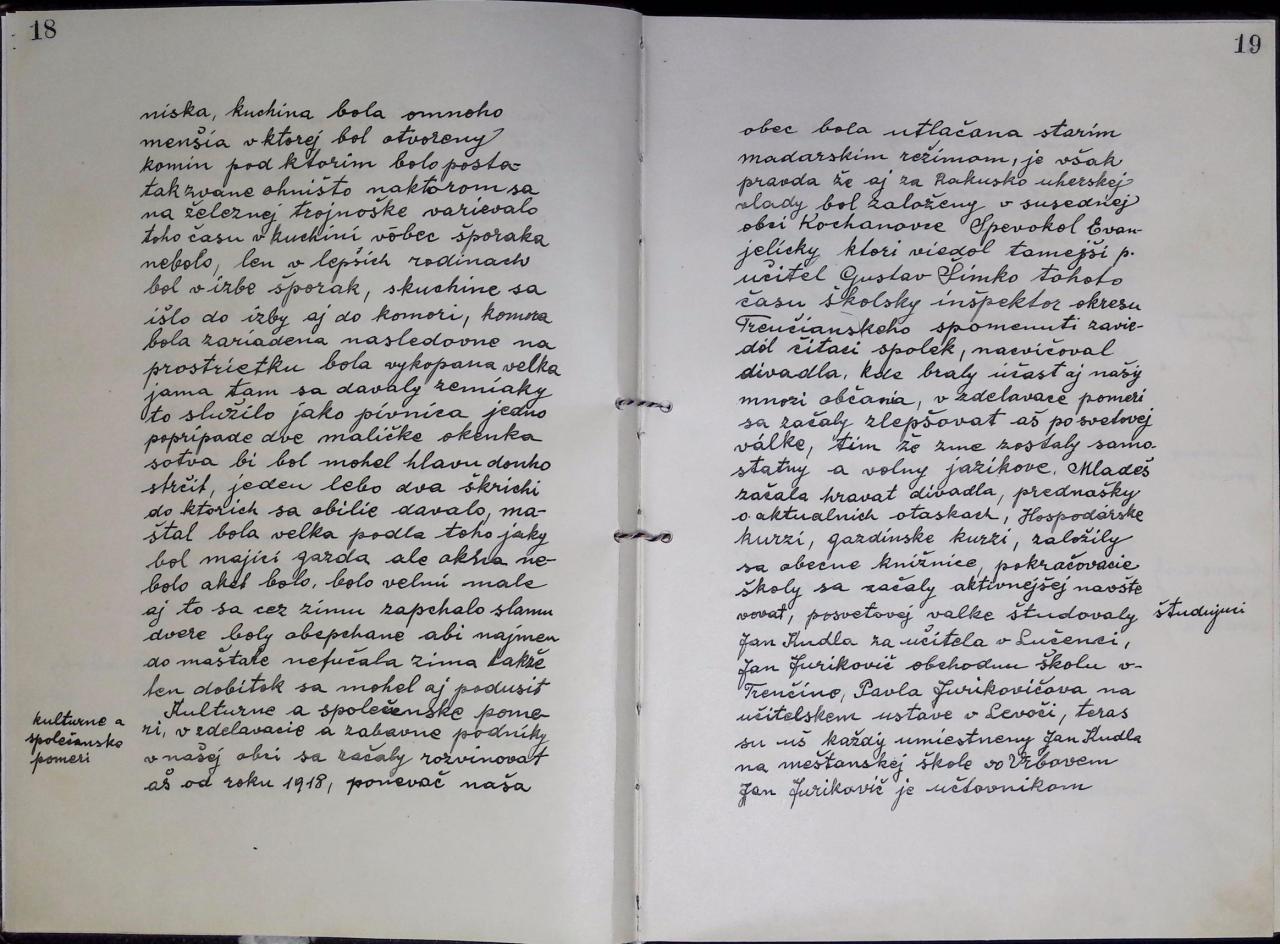 18
niska, kuchina bola omnoho
menšia v ktorej bol otvoreny
komin pod ktorim bolo posta-
takzvane ohništo naktorom sa
na železnej trojnoške varievalo
toho času v kuchini vôbec šporaka
nebolo, len v lepšich rodinach
bol v izbe šporak, skuchine sa
išlo do izby aj do komori, komora
bola zariadena nasledovne na
prostrietku bola vykopana velka
jama tam sa davaly zemiaky
to služilo jako pivnica jedno
popripade dve maličke okenka
sotva bi bol mohel hlavu donho
strčit, jeden lebo dva škrichi
do ktorich sa obilie davalo, ma-
štal bola velka podla toho jaky
bol majici gazda ale okna ne-
bolo aket bolo, bolo velmi male
aj to sa cez zimu zapchalo slamu
dvere boly obepchane abi najmen
do maštale nefučala zima takže
ten dobitok sa mohel aj podusit
kulturne a
spoločansko
pomeri
Kulturne a společenske pome-
ri, vzdelavacie a zabavne podniky
v našej obci sa začaly rozvinovat
aš od roku 1918, ponevač naša
19
obec bola utlačana starim
madarskim režimom, je však
pravda že aj za Rakusko uherskej
vlady bol založeny v susednej
obci Kochanovce Spevokol Evan-
jelicky ktori viedol tamejši p.
učitel Gustav Šimko tohoto
času školsky inšpektor okresu
Trenčianskeho spomenuti zavie-
dol čitaci spolek, nacvičoval
divadla, kde braly učast aj našy
mnozi občania, vzdelavace pomeri
sa začaly zlepšovat aš po svetovej
válke, tim že zme zostaly samo-
statny a volny jazikove. Mladeš
začala hravat divadla, prednašky
o aktualnich otaskach, Hospodárske
kurzi, gazdinske kurzi, založily
sa obecne knižnice, pokračovacie
školy sa začaly aktivnejšej navšte
vovat, posvetovej valke študovaly
študujuci
Jan Kudla za učitela v Lučenci,
Jan Jurikovič obchodnu školu v-
Trenčine, Pavla Jurikovičova na
učitelskem ustave v Levoči, teras
su uš každy umiestneny Jan Kudla
na meštanskej škole vo Vrbovem
Jan Jurikovič je učtovnikom